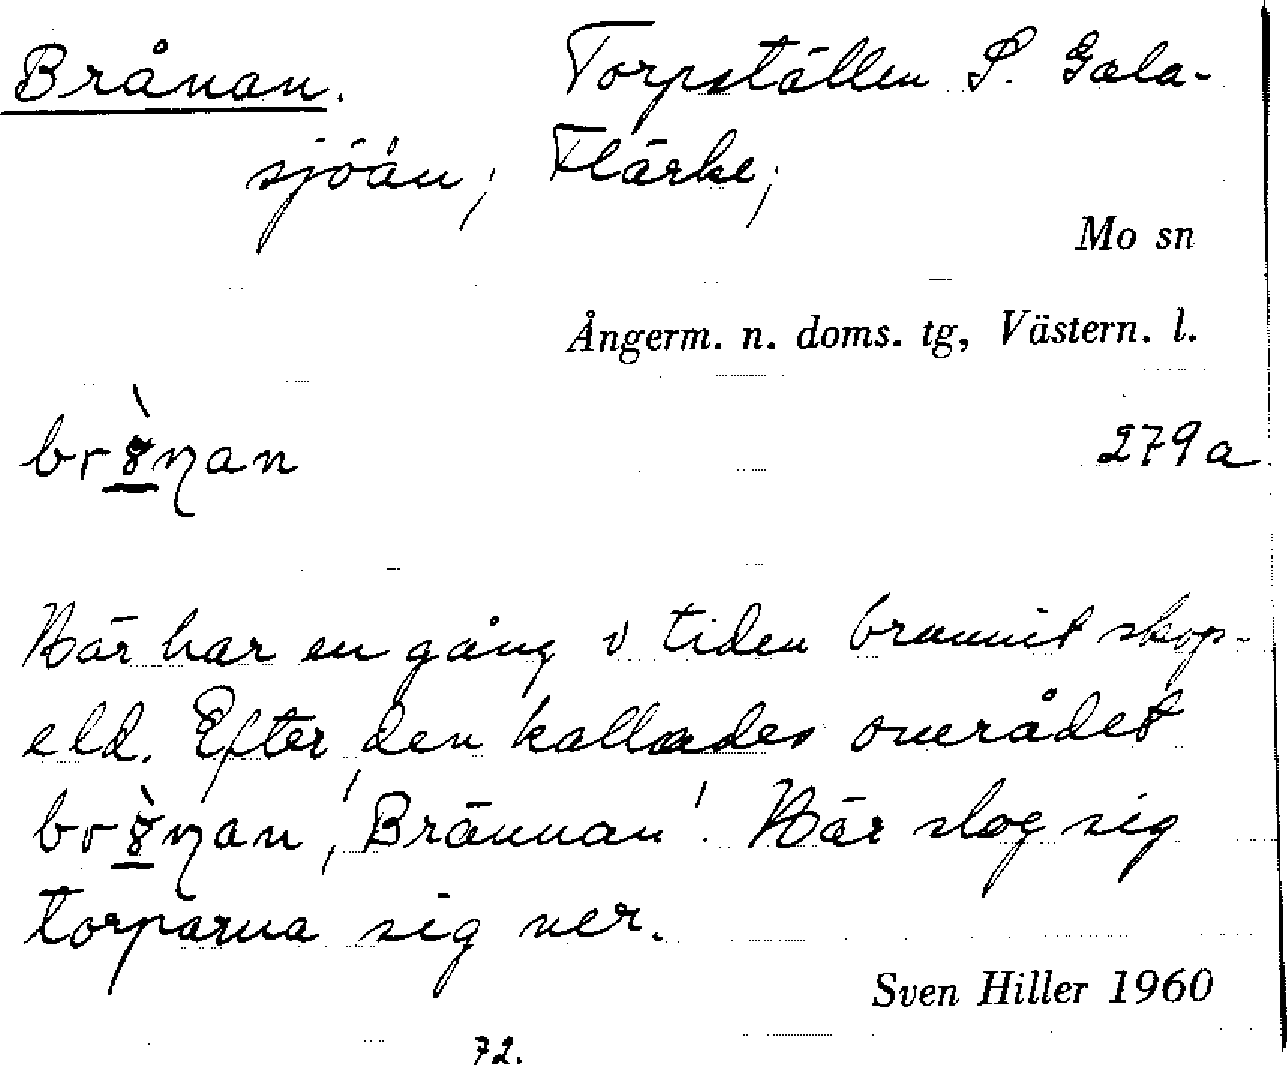 Brånan. Torpställen S. Gala-
sjöån, Flärke,
Mo sn
Ångerm. n. doms. tg, Västern. l.
279a
Här har en gång i tiden brunnit skog-
eld. Efter den kallades området
'Brännan'. Här slog sig
torparna sig ner.
Sven Hiller 1960
72.